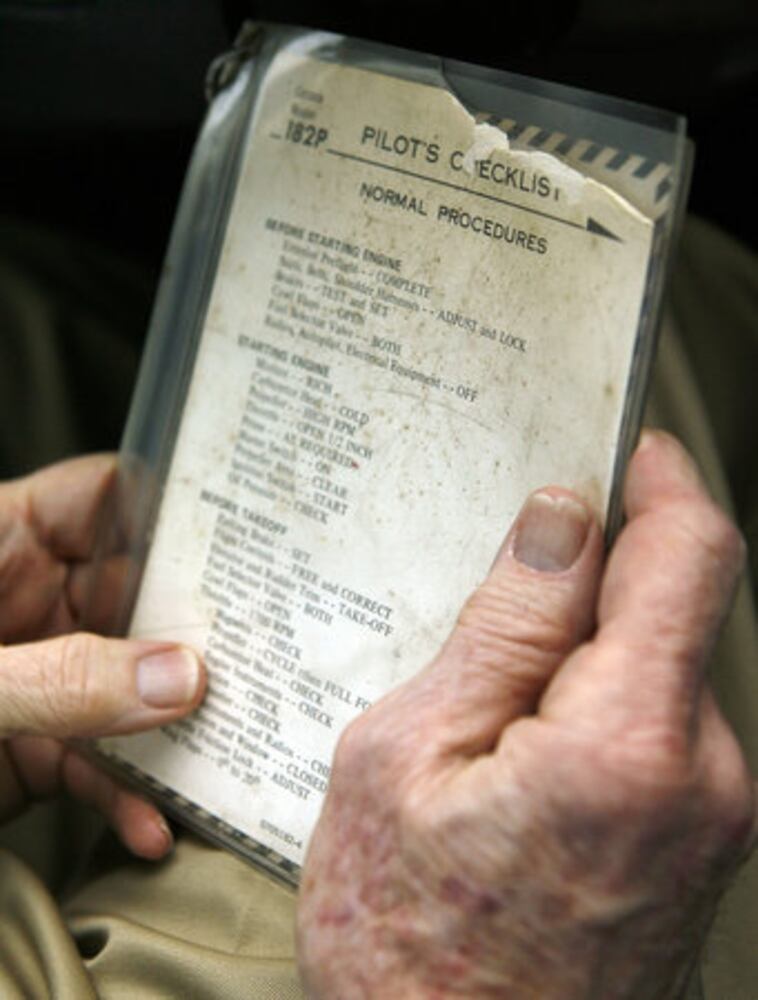 Cessna
Model
182P
PILOT'S C ECKLIST
NORMAL PROCEDURES
BEFORE STARTING ENGINE
External Preflight - - COMPLETE
Seats, Belts, Shoulder Harnesses - - ADJUST and LOCK
Brakes - - TEST and SET
Cowl Flaps - - OPEN
Fuel Selector Valve - - BOTH
Radios, Autopilot, Electrical Equipment - - OFF
STARTING ENGINE
Mixture - - RICH
Carburetor Heat - - COLD
Propeller - - HIGH RPM
Throttle - - OPEN 1/2 INCH
Prime - - AS REQUIRED
Master Switch - - ON
Propeller Area - - CLEAR
Ignition Switch - - START
Oil Pressure - - CHECK
BEFORE TAKEOFF
Parking Brake - - SET
Flight Controls - - FREE and CORRECT
Elevator and Rudder Trim - - TAKE-OFF
Fuel Selector Valve - - BOTH
Cowl Flaps - - OPEN
Throttle - - RPM
Magnetos - - CHECK
Propeller - - CYCLE FULL
Carburetor Heat - - CHECK
Engine Instruments - - CHECK
- - CHECK
- - CHECK
and Radios - -
and Window - - CLOSED
Friction Lock - - ADJUST
Wing Flaps - - 0° to 20°